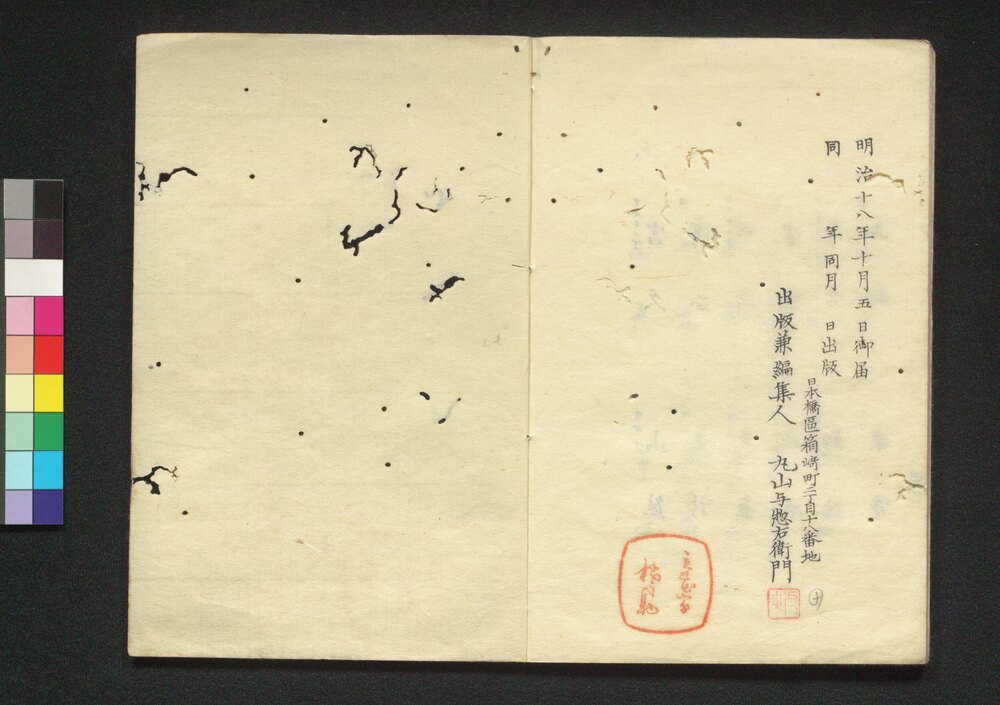 明治十八年十月五日御届
同 年同月 日出版
日本橋區箱崎町二丁目十八番地
出版兼編集人 丸山与惣右衛門